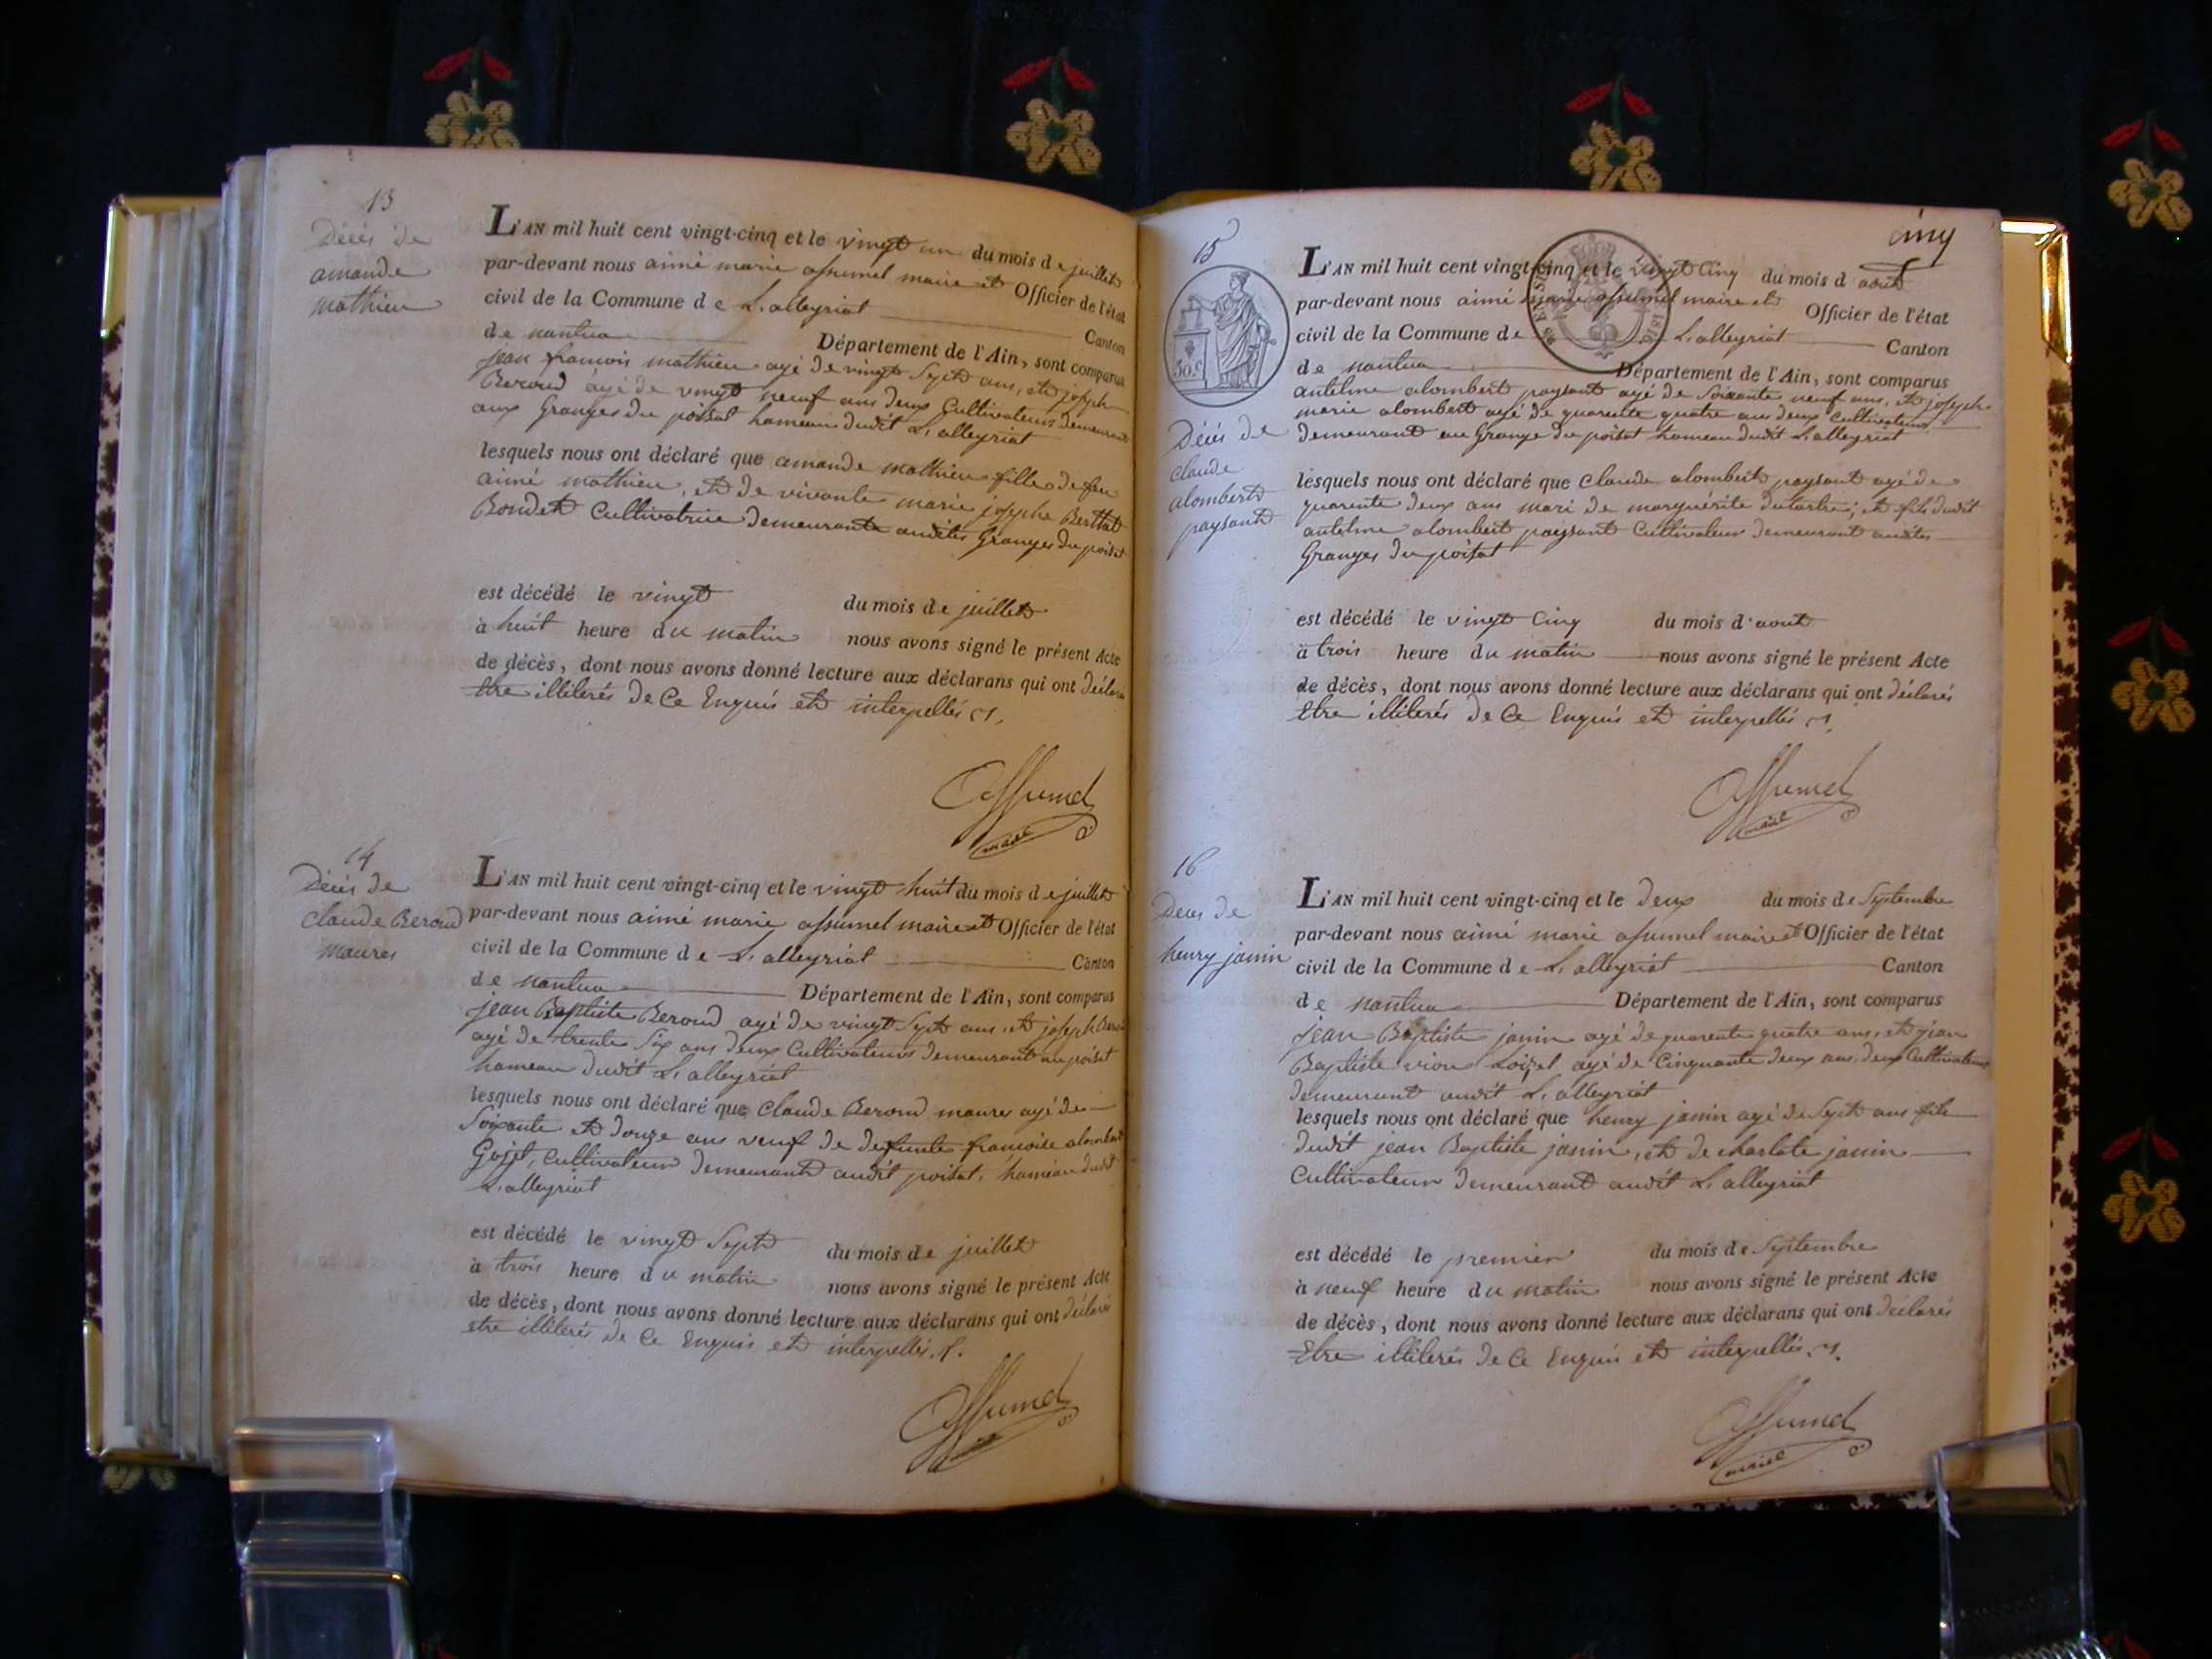 13
Décès de
amande
mathieu
L'AN mil huit cent vingt-cinq et le vingt un du mois de juillet
par-devant nous aimé marie assumel maire et Officier de l'état
civil de la Commune de L'alleyriat Canton
de nantua Département de l'Ain, sont comparus
jean francois mathieu agé de vingt Sept ans, et joseph
Beroud agé de vingt neuf ans deux Cultivateurs demeurant
aux Granges du poisat hameau dudit L'alleyriat
lesquels nous ont déclaré que amande mathieu fille de feu
aimé mathieu, et de vivante marie josephe Berthet
Bondet Cultivatrice demeurante audites Granges du poisat
est décédé le vingt du mois de juillet
à huit heure du matin nous avons signé le présent Acte
de décès, dont nous avons donné lecture aux déclarans qui ont déclarés
Etre illiterés de Ce Enquis et interpellés
Assumel
maire
14
Décès de
Claude Beroud
maures
L'AN mil huit cent vingt-cinq et le vingt huit du mois de juillet
par-devant nous aimé marie assumel maire et Officier de l'état
civil de la Commune de L'alleyriat Canton
de nantua Département de l'Ain, sont comparus
jean Baptiste Beroud agé de vingt Sept ans, et joseph Beroud
agé de trente Six ans deux Cultivateurs demeurant au poisat
hameau dudit L'alleyriat
lesquels nous ont déclaré que Claude Beroud maures agé de
Soixante et douze ans veuf de defunte francoise alombert
Gojet, Cultivateur demeurant audit poisat, hameau dudit
L'alleyriat
est décédé le vingt Sept du mois de juillet
à trois heure du matin nous avons signé le présent Acte
de décès, dont nous avons donné lecture aux déclarans qui ont déclarés
etre illiterés de Ce Enquis et interpellés
Assumel
maire
cinq
15
50 c
Décès de
claude
alombert
paysant
L'AN mil huit cent vingt-cinq et le vingt Cinq du mois d'aout
par-devant nous aimé marie assumel maire et Officier de l'état
civil de la Commune de L'alleyriat Canton
de nantua Département de l'Ain, sont comparus
antelme alombert paysant agé de Soixante neuf ans, et joseph
marie alombert agé de quarente quatre ans deux Cultivateurs
demeurant au Grange du poisat hameau dudit L'alleyriat
lesquels nous ont déclaré que Claude alombert paysant agé de
quarente deux ans mari de marguérite dutartre; et fils dudit
antelme alombert paysant Cultivateur demeurant audites
Granges du poisat
est décédé le vingt Cinq du mois d'aout
à trois heure du matin nous avons signé le présent Acte
de décès, dont nous avons donné lecture aux déclarans qui ont déclarés
Etre illiterés de Ce Enquis et interpellés
Assumel
maire
16
Deces de
henry janin
L'AN mil huit cent vingt-cinq et le deux du mois de Septembre
par-devant nous aimé marie assumel maire et Officier de l'état
civil de la Commune de L'alleyriat Canton
de nantua Département de l'Ain, sont comparus
jean Baptiste janin agé de quarente quatre ans, et jean
Baptiste vion Loizel agé de Cinquante deux ans, deux Cultivateurs
demeurant audit L'alleyriat
lesquels nous ont déclaré que henry janin agé de Sept ans fils
dudit jean Baptiste janin, et de charlote janin
Cultivateur demeurant audit L'alleyriat
est décédé le premier du mois de Septembre
à neuf heure du matin nous avons signé le présent Acte
de décès, dont nous avons donné lecture aux déclarans qui ont déclarés
Etre illiterés de Ce Enquis et interpellés
Assumel
maire